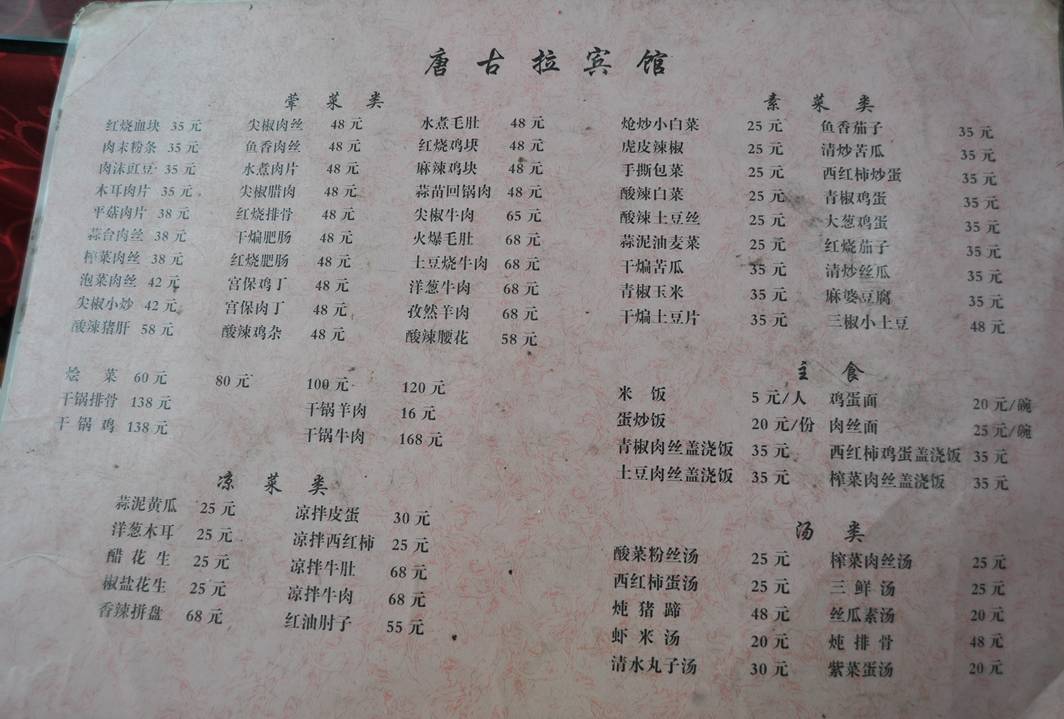 唐古拉宾馆
荤菜类
红烧血块 35元 尖椒肉丝 48元 水煮毛肚 48元
肉末粉条 35元 鱼香肉丝 48元 红烧鸡块 48元
肉沫豇豆 35元 水煮肉片 48元 麻辣鸡块 48元
木耳肉片 35元 尖椒腊肉 48元 蒜苗回锅肉 48元
平菇肉片 38元 红烧排骨 48元 尖椒牛肉 65元
蒜台肉丝 38元 干煸肥肠 48元 火爆毛肚 68元
榨菜肉丝 38元 红烧肥肠 48元 土豆烧牛肉 68元
泡菜肉丝 42元 宫保鸡丁 48元 洋葱牛肉 68元
尖椒小炒 42元 宫保肉丁 48元 孜然羊肉 68元
酸辣猪肝 58元 酸辣鸡杂 48元 酸辣腰花 58元
烩菜 60元 80元 100元 120元
干锅排骨 138元 干锅羊肉 16元
干锅鸡 138元 干锅牛肉 168元
凉菜类
蒜泥黄瓜 25元 凉拌皮蛋 30元
洋葱木耳 25元 凉拌西红柿 25元
醋花生 25元 凉拌牛肚 68元
椒盐花生 25元 凉拌牛肉 68元
香辣拼盘 68元 红油肘子 55元
素菜类
炝炒小白菜 25元 鱼香茄子 35元
虎皮辣椒 25元 清炒苦瓜 35元
手撕包菜 25元 西红柿炒蛋 35元
酸辣白菜 25元 青椒鸡蛋 35元
酸辣土豆丝 25元 大葱鸡蛋 35元
蒜泥油麦菜 25元 红烧茄子 35元
干煸苦瓜 35元 清炒丝瓜 35元
青椒玉米 35元 麻婆豆腐 35元
干煸土豆片 35元 三椒小土豆 48元
主食
米饭 5元/人 鸡蛋面 20元/碗
蛋炒饭 20元/份 肉丝面 25元/碗
青椒肉丝盖浇饭 35元 西红柿鸡蛋盖浇饭 35元
土豆肉丝盖浇饭 35元 榨菜肉丝盖浇饭 35元
汤类
酸菜粉丝汤 25元 榨菜肉丝汤 25元
西红柿蛋汤 25元 三鲜汤 25元
炖猪蹄 48元 丝瓜素汤 20元
虾米汤 20元 炖排骨 48元
清水丸子汤 30元 紫菜蛋汤 20元